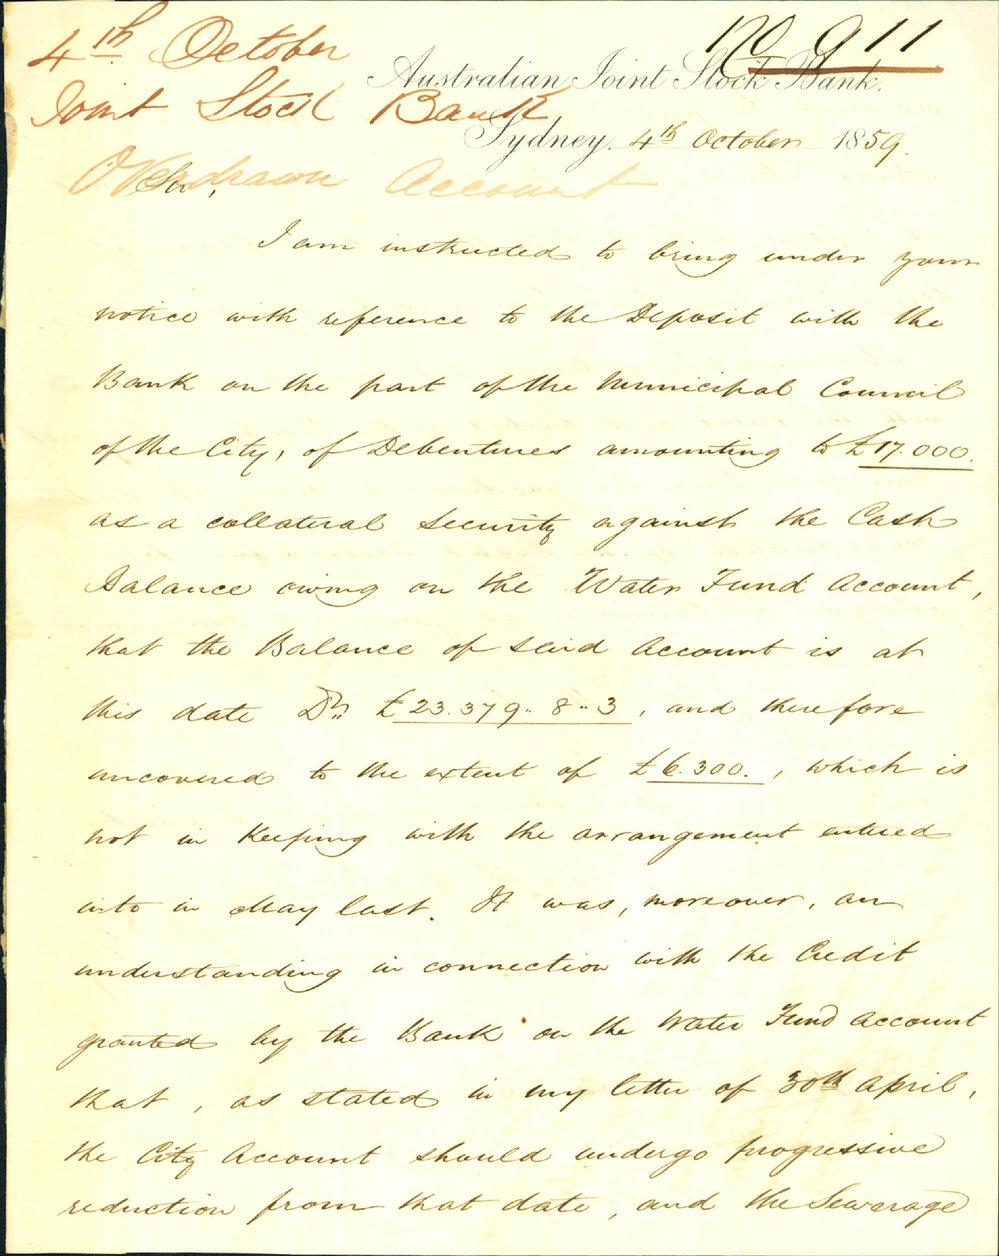 4th October
Joint Stock Bank
Overdrawn Account
No 911
Australian Joint Stock Bank.
Sydney. 4th October 1859.
Sir,
I am instructed to bring under your
notice with reference to the Deposit with the
Bank on the part of the Municipal Council
of the City, of Debentures amounting to £17.000.
as a collateral security against the Cash
Balance owing on the Water Fund Account,
that the Balance of said Account is at
this date Dr. £23.379..8..3, and therefore
uncovered to the extent of £6.300., which is
not in keeping with the arrangement entered
into in May last. It was, moreover, an
understanding in connection with the Credit
granted by the Bank on the Water Fund Account
that, as stated in my letter of 30th April,
the City Account should undergo progressive
reduction from that date, and the Sewerage